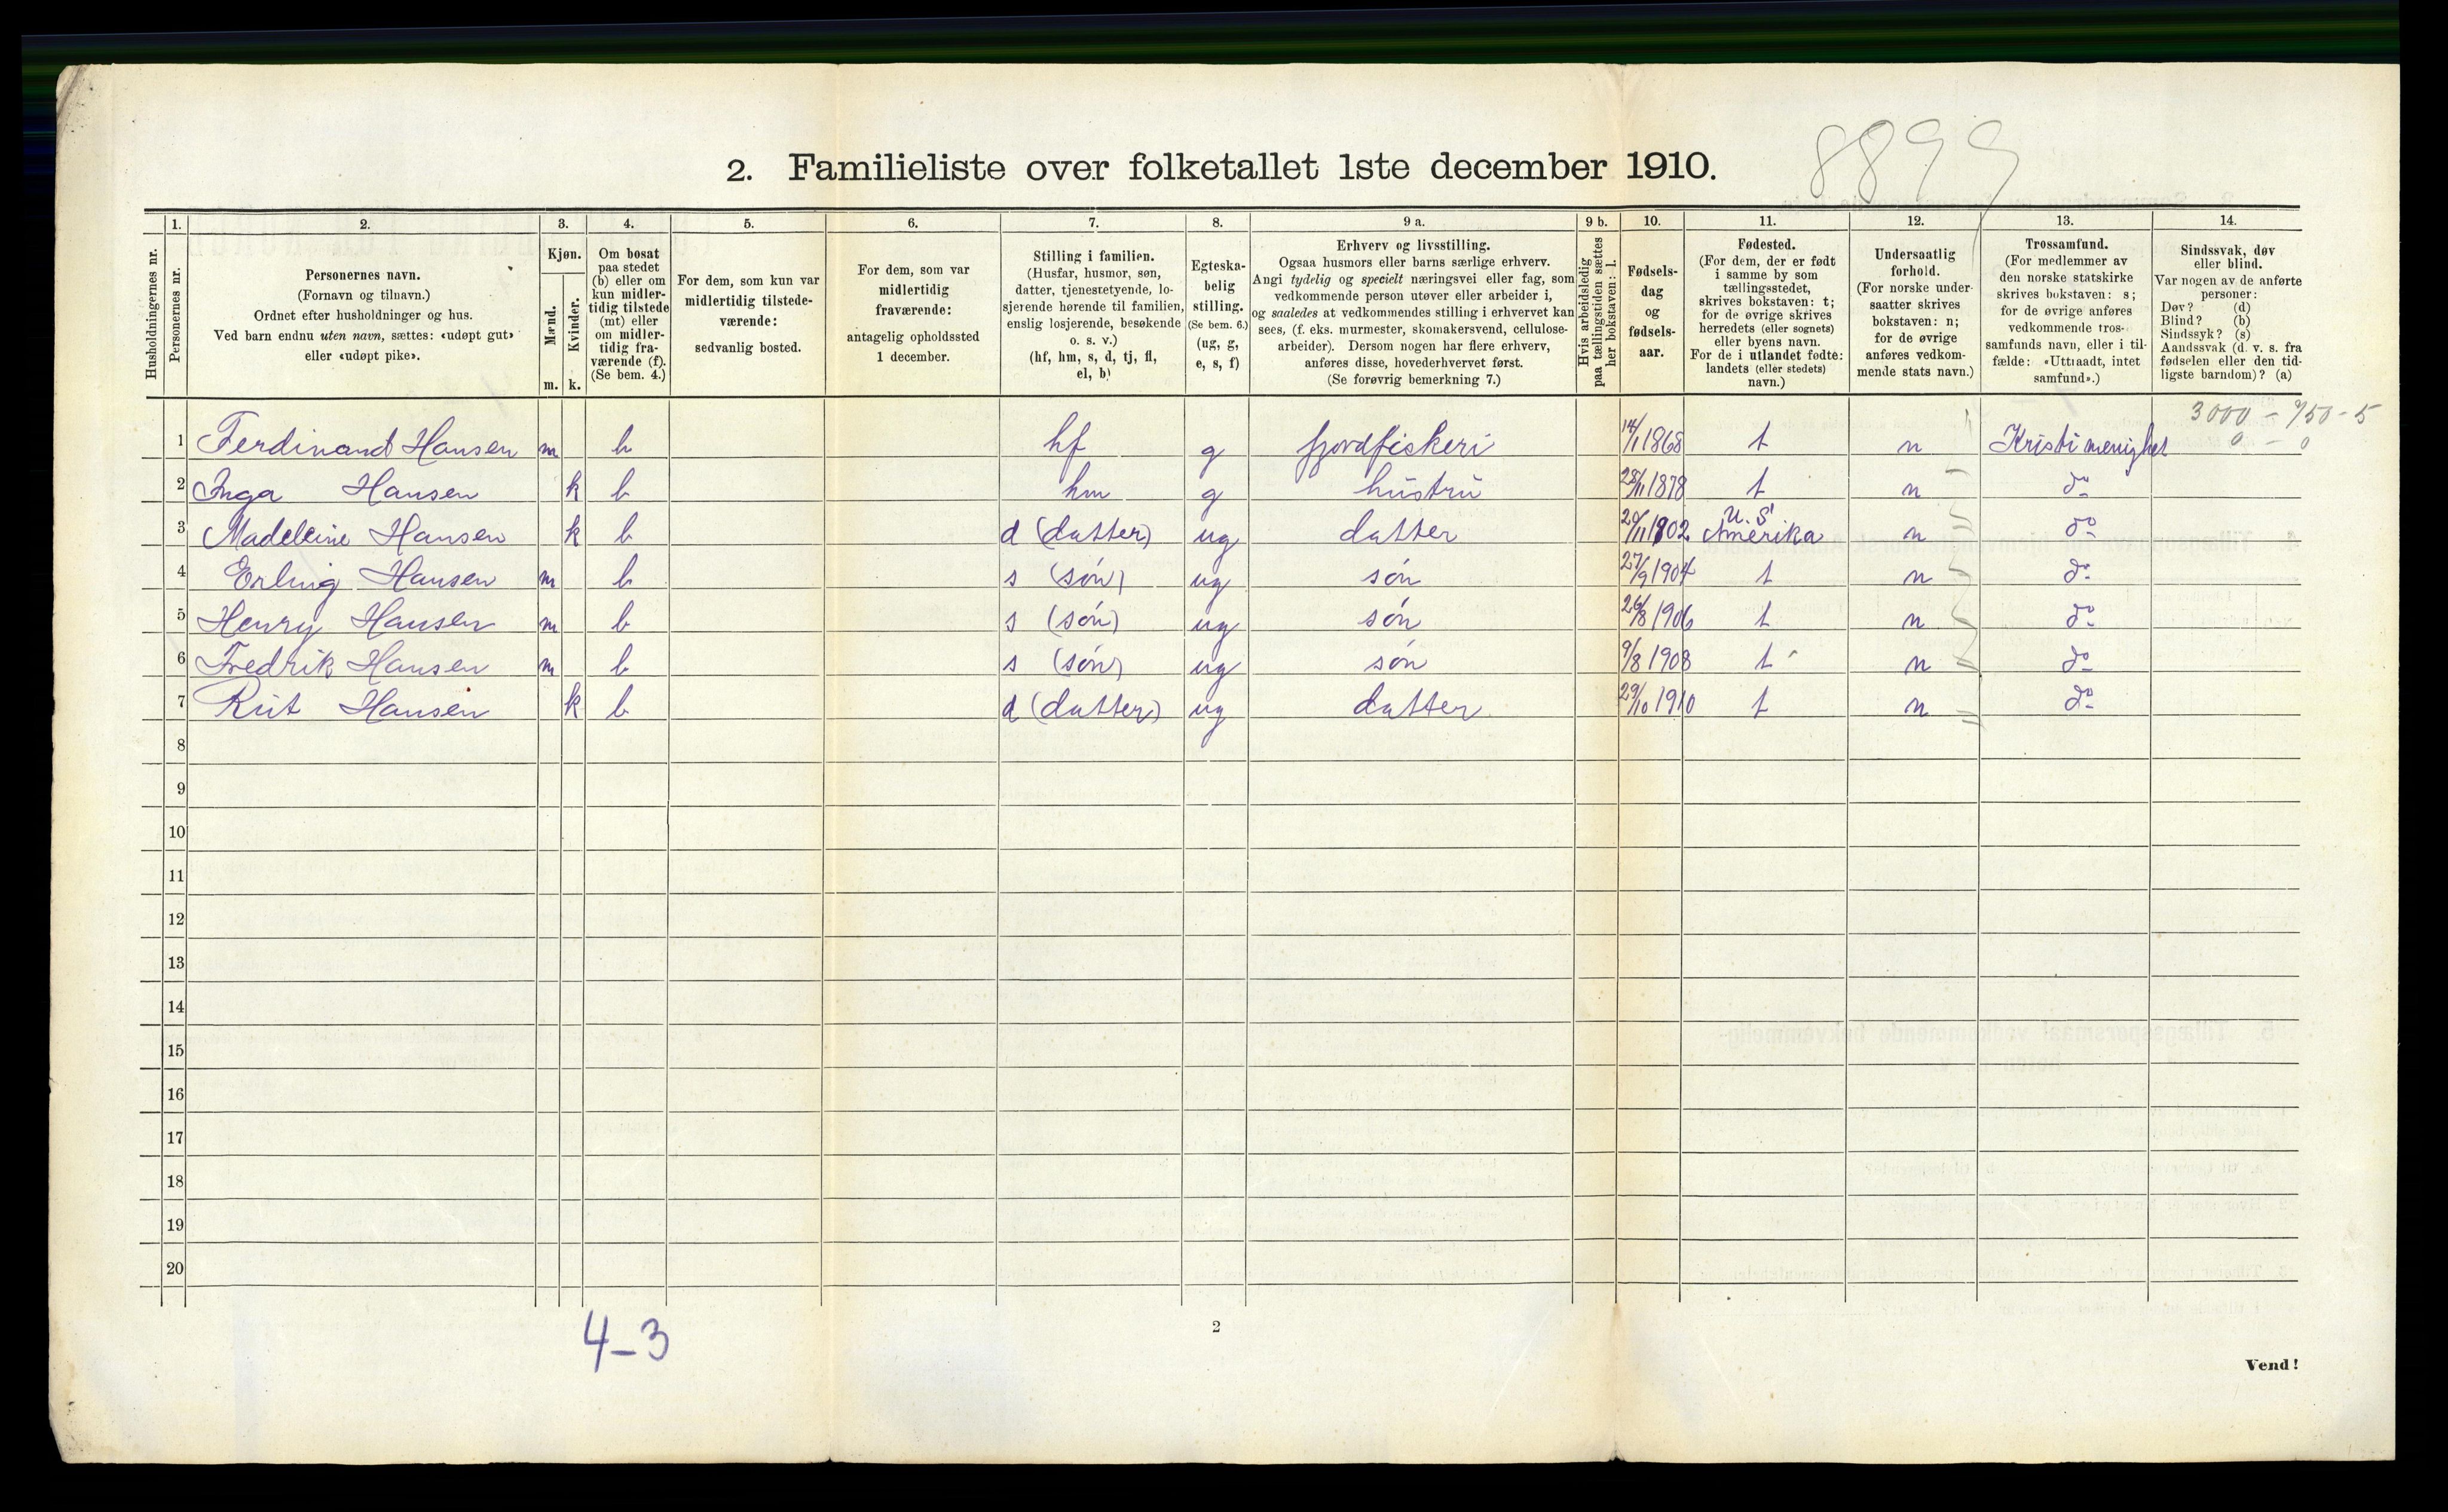 8899
2. Familieliste over folketallet 1ste december 1910.
Husholdningernes nr.
1. Personernes nr.
2. Personernes navn.
(Fornavn og tilnavn.)
Ordnet efter husholdninger og hus.
Ved barn endnu uten navn, sættes: «udøpt gut»
eller «udøpt pike».
3. Kjøn.
Mænd. m.
Kvinder. k.
4. Om bosat
paa stedet
(b) eller om
kun midler-
tidig tilstede
(mt) eller
om midler-
tidig fra-
værende (f).
(Se bem. 4.)
5. For dem, som kun var
midlertidig tilstede-
værende:
sedvanlig bosted.
6. For dem, som var
midlertidig
fraværende:
antagelig opholdssted
1 december.
7. Stilling i familien.
(Husfar, husmor, søn,
datter, tjenestetyende, lo-
sjerende hørende til familien,
enslig losjerende, besøkende
o. s. v.)
(hf, hm, s, d, tj, fl,
el, b)
8. Egteska-
belig
stilling.
(Se bem. 6.)
(ug, g,
e, s, f)
9 a. Erhverv og livsstilling.
Ogsaa husmors eller barns særlige erhverv.
Angi tydelig og specielt næringsvei eller fag, som
vedkommende person utøver eller arbeider i,
og saaledes at vedkommendes stilling i erhvervet kan
sees, (f. eks. murmester, skomakersvend, cellulose-
arbeider). Dersom nogen har flere erhverv,
anføres disse, hovederhvervet først.
(Se forøvrig bemerkning 7.)
9 b. Hvis arbeidsledig
paa tællingstiden sættes
her bokstaven: l.
10. Fødsels-
dag
og
fødsels-
aar.
11. Fødested.
(For dem, der er født
i samme by som
tællingsstedet,
skrives bokstaven: t;
for de øvrige skrives
herredets (eller sognets)
eller byens navn.
For de i utlandet fødte:
landets (eller stedets)
navn.)
12. Undersaatlig
forhold.
(For norske under-
saatter skrives
bokstaven: n;
for de øvrige
anføres vedkom-
mende stats navn.)
13. Trossamfund.
(For medlemmer av
den norske statskirke
skrives bokstaven: s;
for de øvrige anføres
vedkommende tros-
samfunds navn, eller i til-
fælde: «Uttraadt, intet
samfund».)
14. Sindssvak, døv
eller blind.
Var nogen av de anførte
personer:
Døv? (d)
Blind? (b)
Sindssyk? (s)
Aandssvak (d. v. s. fra
fødselen eller den tid-
ligste barndom)? (a)
3000 - 750 - 5
0 - 0
1 Ferdinand Hansen m b hf g fjordfiskeri 14/1 1868 t n Kristi menighet
2 Inga Hansen k b hm g hustru 28/11 1878 t n do
3 Madeleine Hansen k b d (datter) ug datter 20/11 1902 U. S. Amerika n do
4 Erling Hansen m b s (søn) ug søn 27/9 1904 t n do
5 Henry Hansen m b s (søn) ug søn 26/8 1906 t n do
6 Fredrik Hansen m b s (søn) ug søn 9/8 1908 t n do
7 Rut Hansen k b d (datter) ug datter 29/10 1910 t n do
8
9
10
11
12
13
14
15
16
17
18
19
20
4-3
2
Vend!